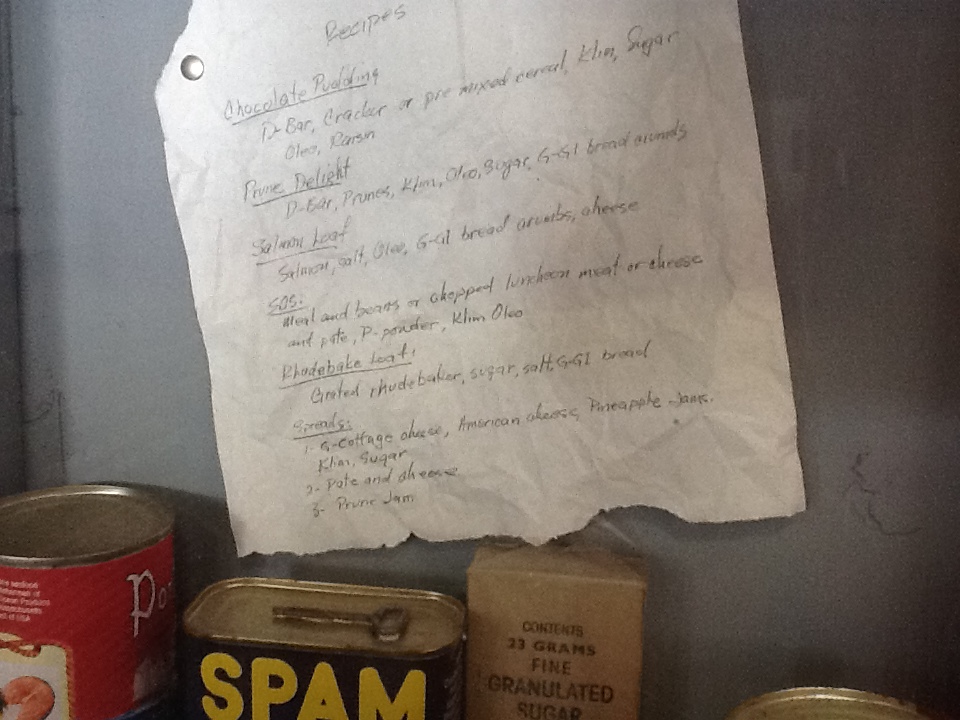 Recipes
Chocolate Pudding
D-Bar, Cracker or pre mixed cereal, Klim, Sugar
Oleo, Raisin
Prune Delight
D-Bar, Prunes, Klim, Oleo, Sugar, G-G1 bread crumbs
Salmon Loaf
Salmon, salt, Oleo, G-G1 bread crumbs, cheese
SOS:
Meat and beans or chopped luncheon meat or cheese
and pate, P-powder, Klim Oleo
Rhudebake Loaf:
Grated rhudebaker, sugar, salt, G-G1 bread
Spreads:
1- G-Cottage cheese, American cheese, Pineapple Jam.
Klim, Sugar
2- Pate and cheese
3- Prune Jam
SPAM
CONTENTS
23 GRAMS
FINE
GRANULATED
SUGAR